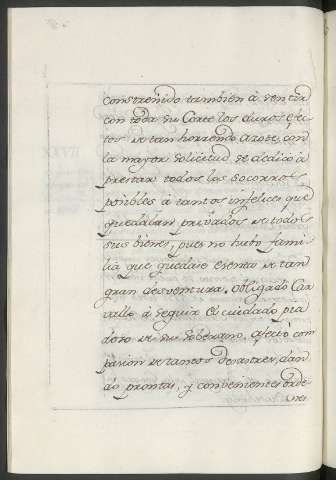 constreñido tambien à sentir
con toda su Corte los duros efec-
tos de tan horrendo azote, con
la mayor solicitud se dedicó à
prestar todos los socorros
posibles à tantos infelices que
quedaban privados de todos
sus bienes, pues no hubo fami-
lia que quedase esenta de tan
gran desventura. Obligado Car-
vallo à seguir el cuidado pia-
doso de su Soberano, afectó com-
pasion de tantos desastres, dan-
do prontas, y convenientes orde-
nes